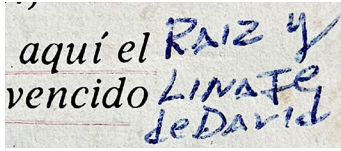 aquí el RAIZ y
vencido LINAJe
de DAVid